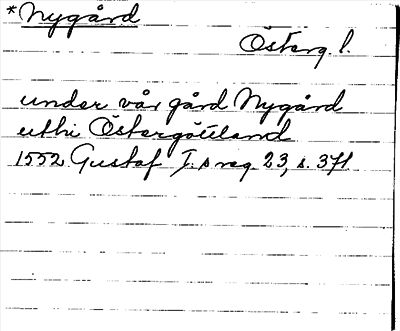 *Nygård
Österg. l.
under vår gård Nygård
uthi Östergötland
1552 Gustaf I:s reg. 23, s. 371